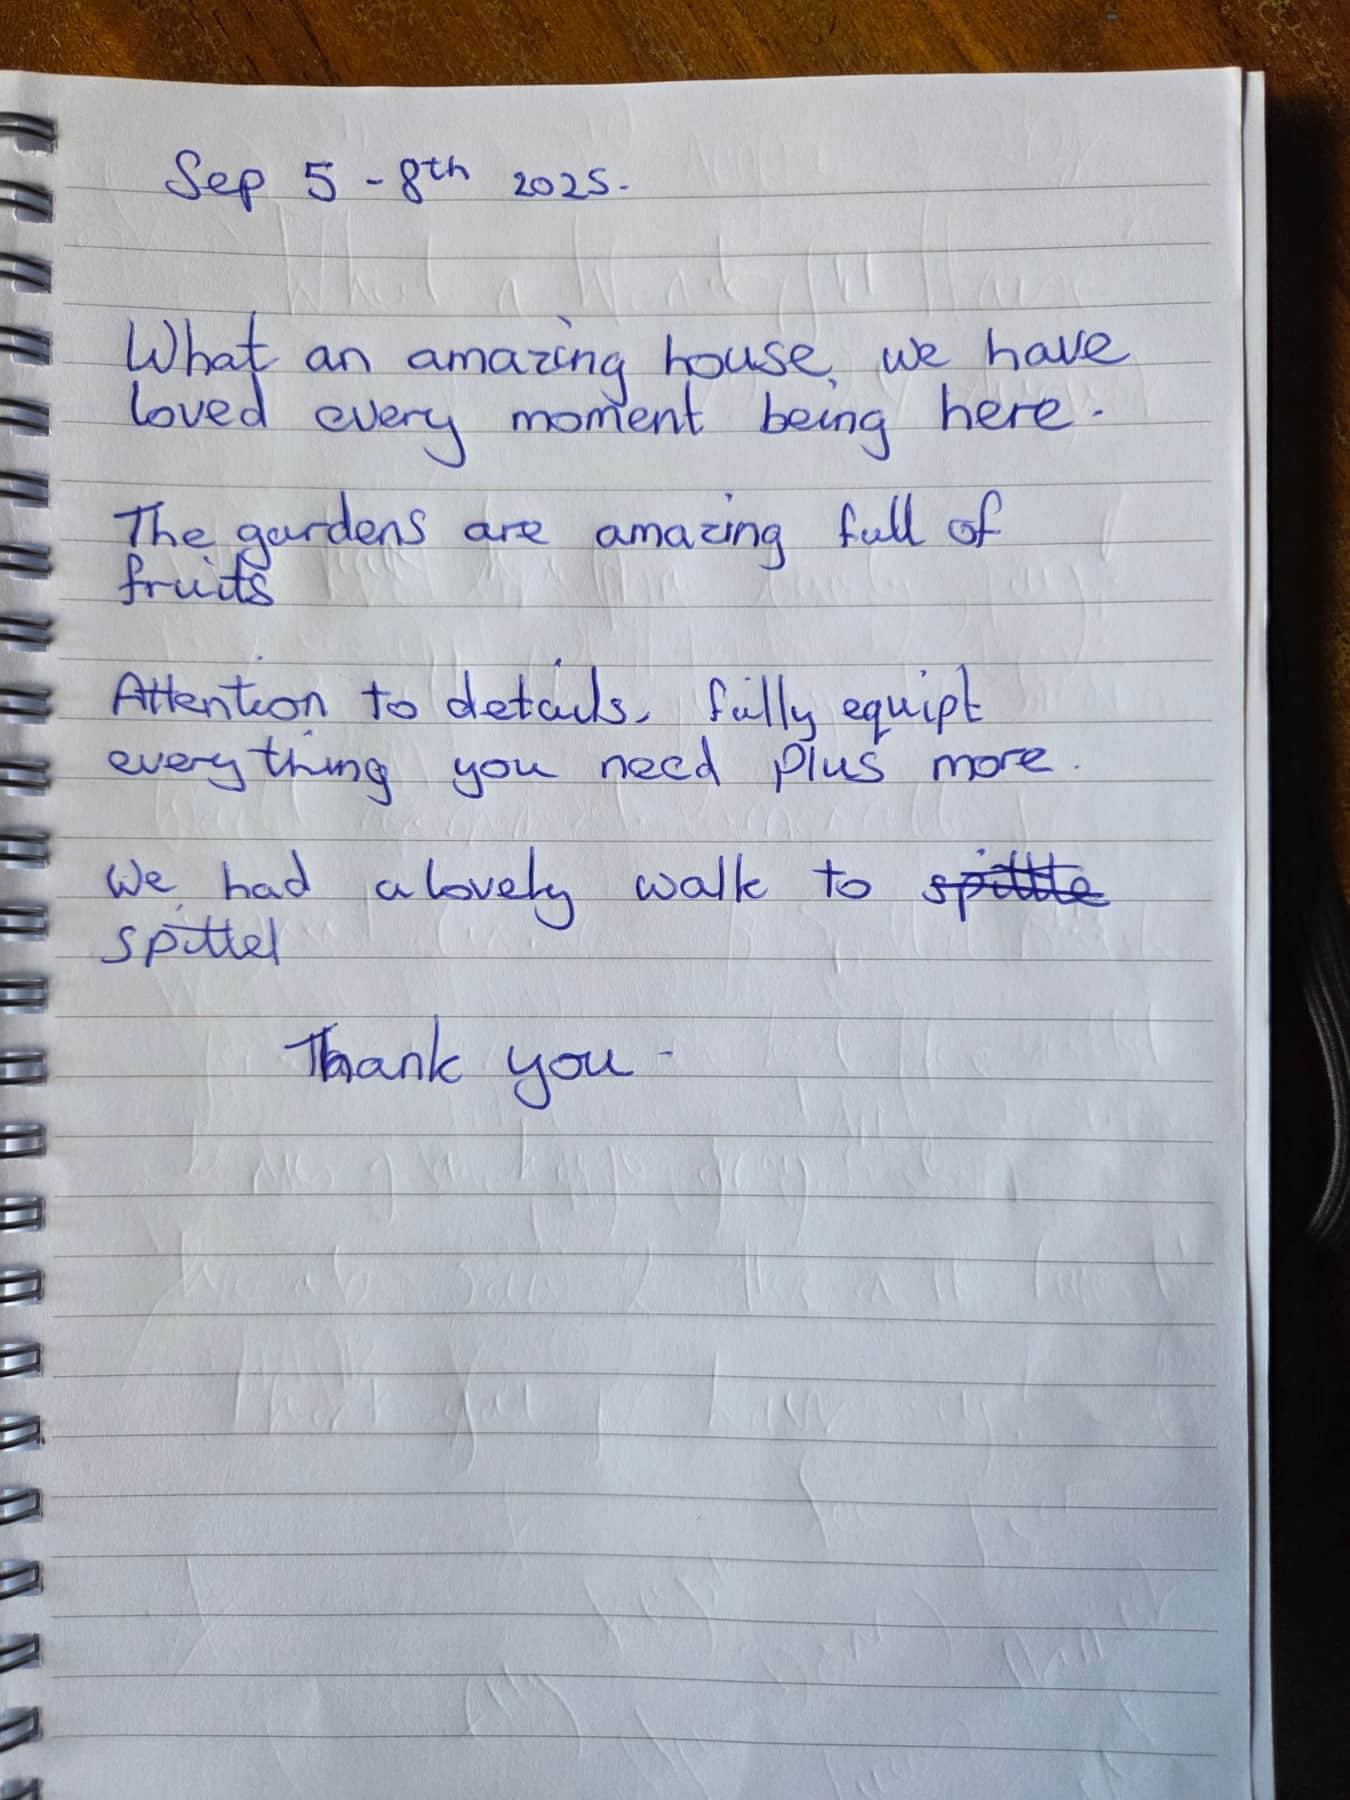 Sep 5 - 8th 2025.
What an amazing house, we have
loved every moment being here.
The gardens are amazing full of
fruits
Attention to details, fully equipt
everything you need plus more.
We had a lovely walk to spittle
spittel
Thank you -